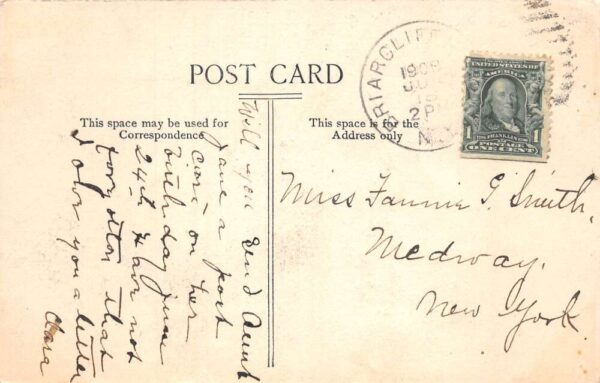 POST CARD
This space may be used for
Correspondence
This space is for the
Address only
BRIARCLIFF
1908
2 PM
N.Y.
UNITED STATES OF
AMERICA
1 FRANKLIN 1
POSTAGE
ONE CENT
Will you send Aunt
Jane a post
card on her
birthday June
24th Have not
forgotten that
I owe you a letter
Clara
Miss Fannie G. Smith,
Medway,
New York.